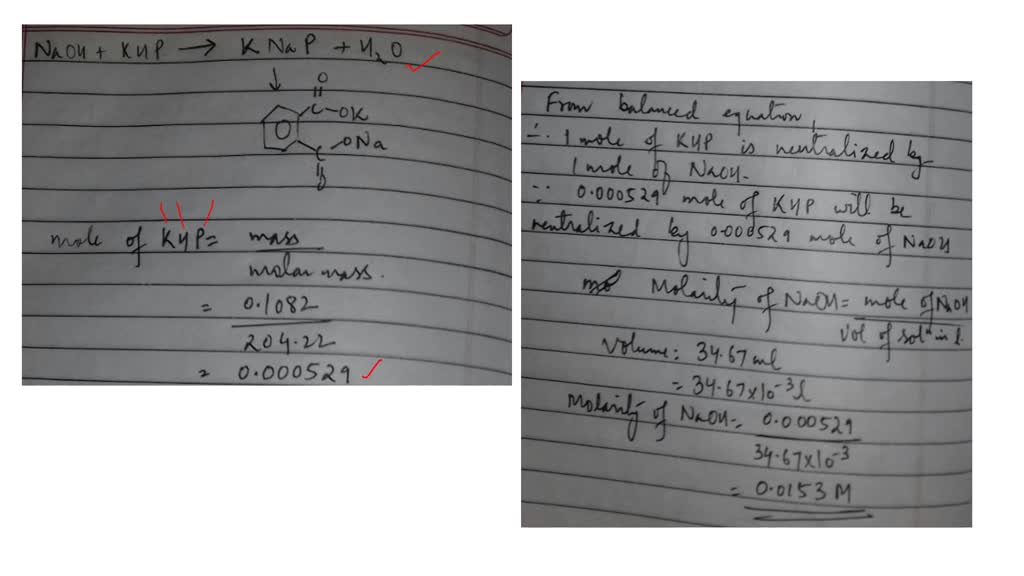 NaOH + KHP → KNaP + H₂O
↓
O
C-OK
C-ONa
O
mole of KHP = mass
molar mass.
= 0.1082
204.22
= 0.000529
From balanced equation,
∴ 1 mole of KHP is neutralized by
1 mole of NaOH.
∵ 0.000529 mole of KHP will be
neutralized by 0.000529 mole of NaOH
Molarity of NaOH = mole of NaOH
vol of solⁿ in l.
Volume: 34.67 ml
= 34.67×10⁻³ l
Molarity of NaOH = 0.000529
34.67×10⁻³
= 0.0153 M